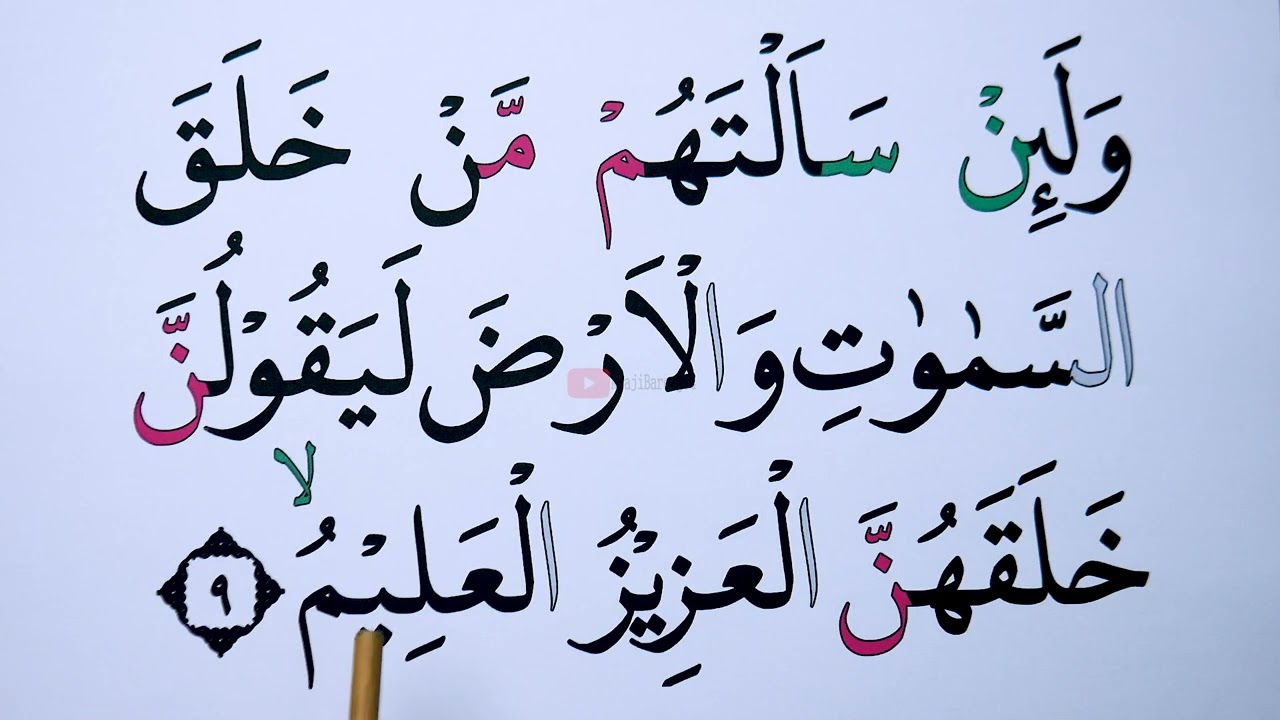 وَلَئِنْ سَاَلْتَهُمْ مَّنْ خَلَقَ
السَّمٰوٰتِ وَالْاَرْضَ لَيَقُوْلُنَّ
خَلَقَهُنَّ الْعَزِيْزُ الْعَلِيْمُ ۙ ٩